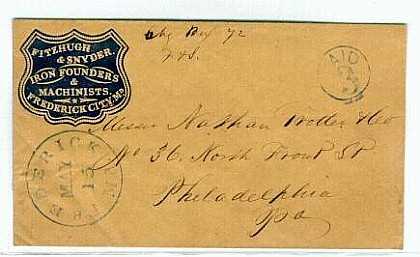 FITZHUGH
& SNYDER.
IRON FOUNDERS
& MACHINISTS.
FREDERICK CITY, Md
Chg Box 72
F&S.
PAID
FREDERICK Md.
MAY
15
Messrs Nathan Trotter & Co
No 36. North Front St
Philadelphia
Pa